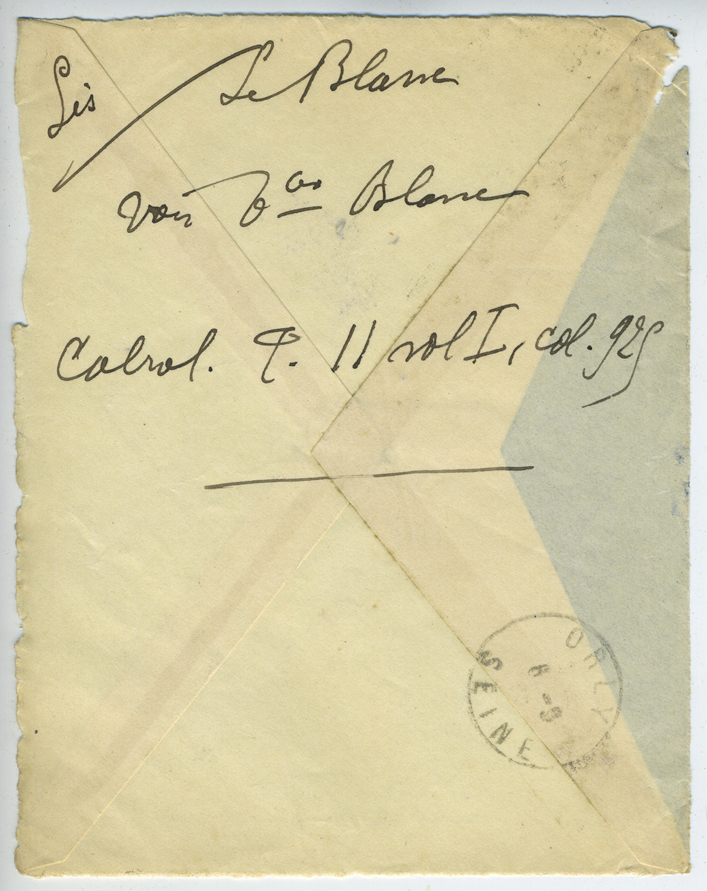 Lis / Le Blanc
voir Bas Blanc
Cabrol. T. 11 vol I, col. 925
ORLY
SEINE